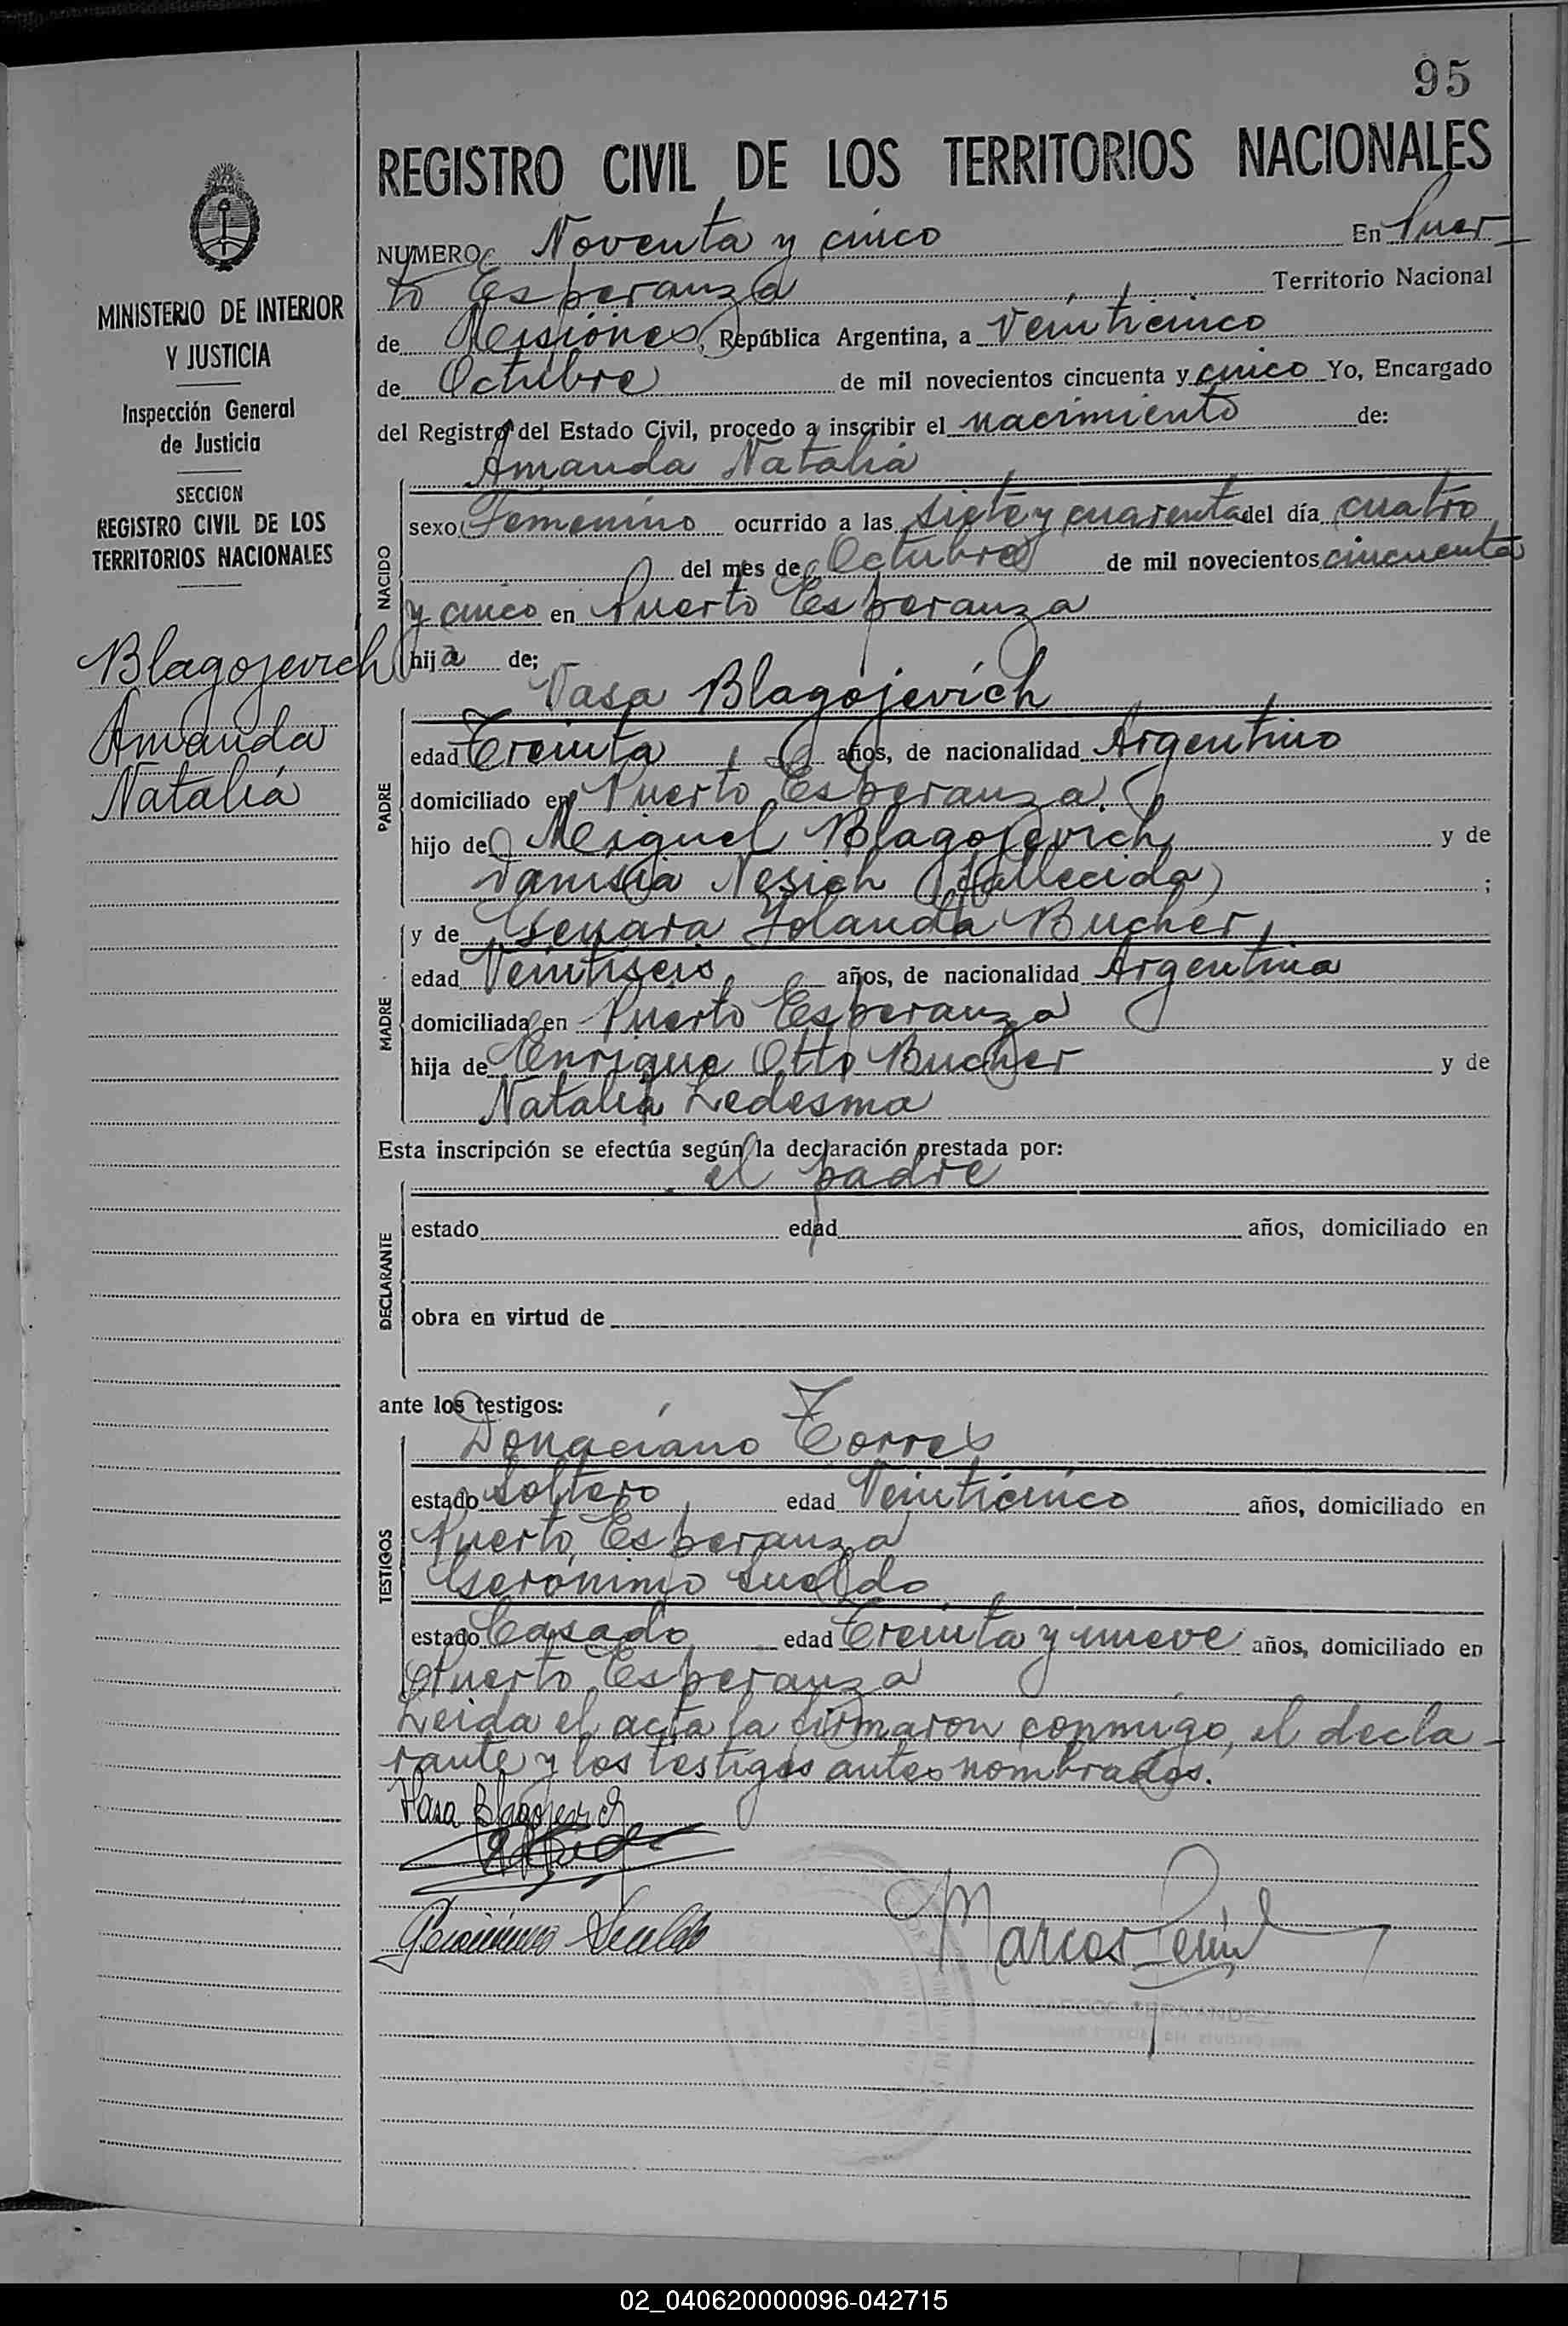 95
REGISTRO CIVIL DE LOS TERRITORIOS NACIONALES
NUMERO Noventa y cinco En Puer-
to Esperanza Territorio Nacional
de Misiones, República Argentina, a Veinticinco
de Octubre de mil novecientos cincuenta y cinco Yo, Encargado
del Registro del Estado Civil, procedo a inscribir el nacimiento de:
Amanda Natalia
NACIDO
sexo Femenino ocurrido a las siete y cuarenta del día cuatro
del mes de Octubre de mil novecientos cincuenta
y cinco en Puerto Esperanza
hija de;
Vasa Blagojevich
PADRE
edad Treinta años, de nacionalidad Argentino
domiciliado en Puerto Esperanza.
hijo de Miguel Blagojevich y de
Nesich (fallecida) ;
y de Genara Yolanda Bucher,
MADRE
edad Veintiseis años, de nacionalidad Argentina
domiciliada en Puerto Esperanza
hija de Enrique Otto Bucher y de
Natalia Ledesma
Esta inscripción se efectúa según la declaración prestada por:
el padre
DECLARANTE
estado edad años, domiciliado en
obra en virtud de
ante los testigos:
Donaciano Torres
TESTIGOS
estado Soltero edad Veinticinco años, domiciliado en
Puerto Esperanza
Geronimo Sueldo
estado Casado edad Treinta y nueve años, domiciliado en
Puerto Esperanza
Leida el acta la firmaron conmigo, el decla-
rante y los testigos antes nombrados.
Vasa Blagojevich
Geronimo Sueldo
Marcos
MINISTERIO DE INTERIOR
Y JUSTICIA
Inspección General
de Justicia
SECCION
REGISTRO CIVIL DE LOS
TERRITORIOS NACIONALES
Blagojevich
Amanda
Natalia
02_040620000096-042715